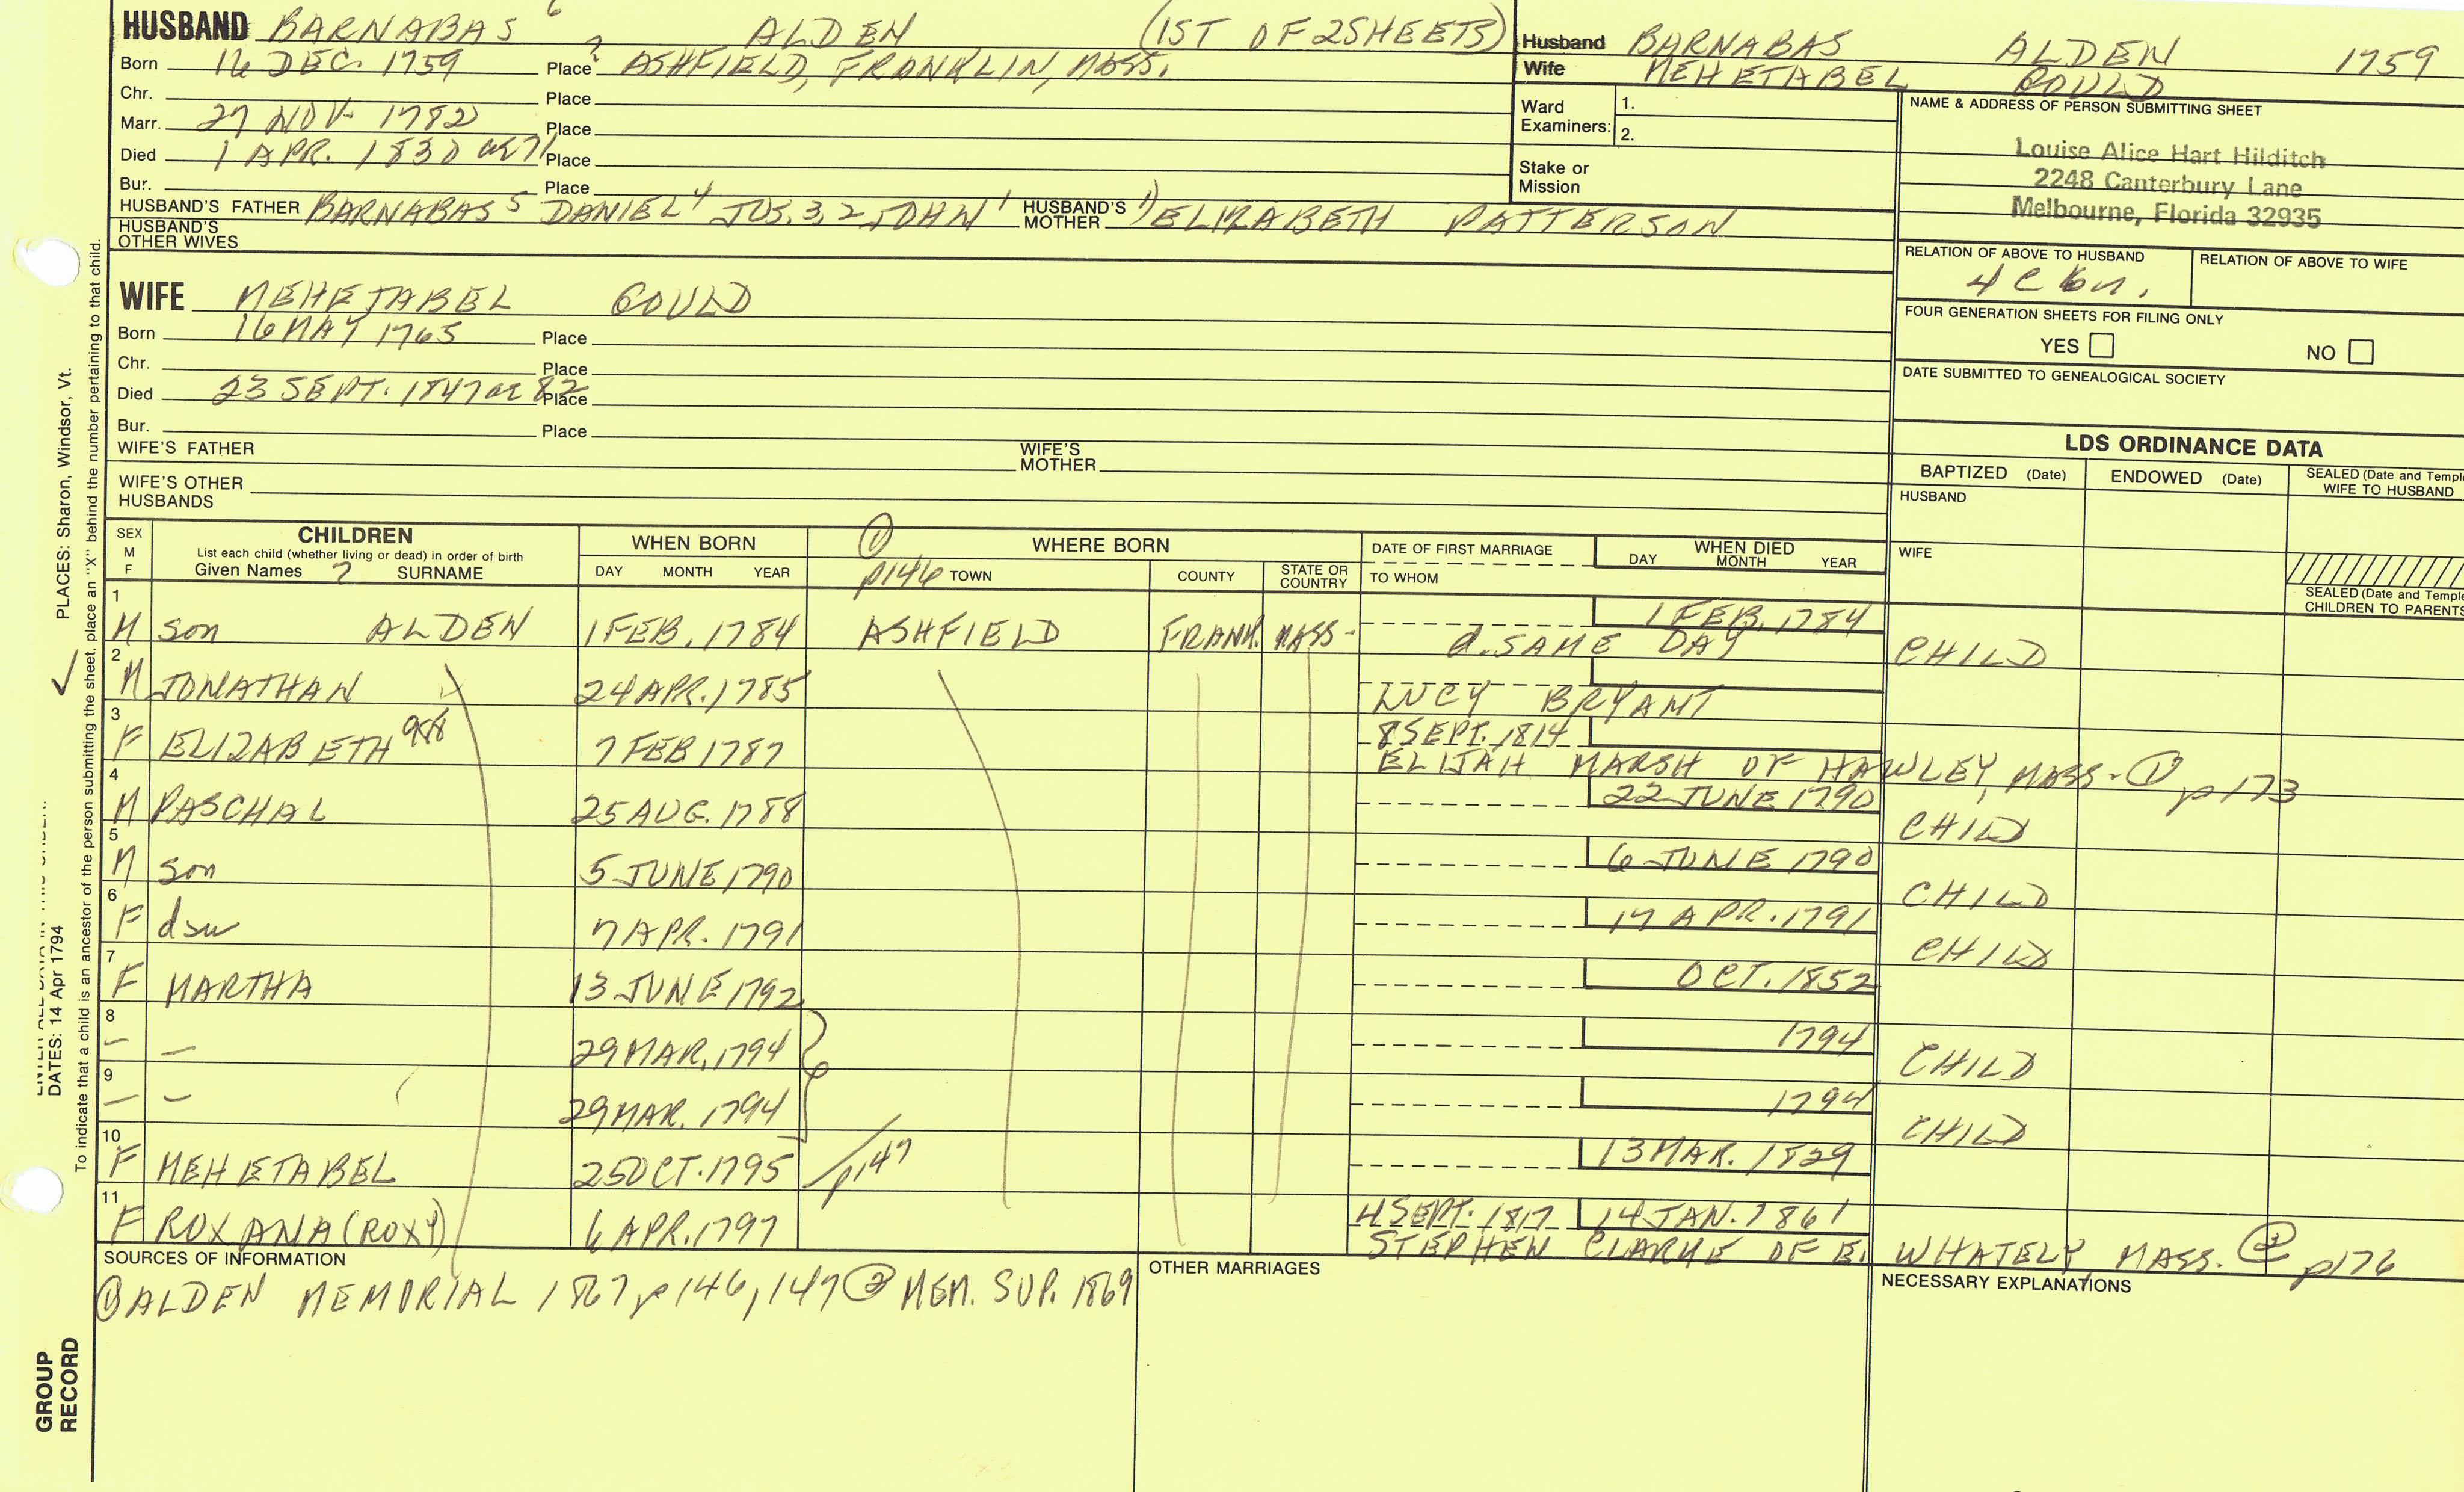 HUSBAND BARNABAS 6 ALDEN (1ST OF 2 SHEETS)
Born 16 DEC. 1759 Place ? ASHFIELD, FRANKLIN, MASS.
Chr. Place
Marr. 27 NOV. 1782 Place
Died 1 APR. 1830 ae 71 Place
Bur. Place
HUSBAND'S FATHER BARNABAS 5 DANIEL 4 JOS. 3, 2 JOHN 1 HUSBAND'S MOTHER 1) ELIZABETH PATTERSON
HUSBAND'S OTHER WIVES
WIFE MEHETABEL GOULD
Born 16 MAY 1765 Place
Chr. Place
Died 23 SEPT. 1847 ae 82 Place
Bur. Place
WIFE'S FATHER WIFE'S MOTHER
WIFE'S OTHER HUSBANDS
Husband BARNABAS ALDEN 1759
Wife MEHETABEL GOULD
Ward Examiners: 1.
2.
Stake or Mission
NAME & ADDRESS OF PERSON SUBMITTING SHEET
Louise Alice Hart Hilditch
2248 Canterbury Lane
Melbourne, Florida 32935
RELATION OF ABOVE TO HUSBAND RELATION OF ABOVE TO WIFE
4 C
FOUR GENERATION SHEETS FOR FILING ONLY
YES NO
DATE SUBMITTED TO GENEALOGICAL SOCIETY
LDS ORDINANCE DATA
BAPTIZED (Date) ENDOWED (Date) SEALED (Date and Templ
WIFE TO HUSBAND
HUSBAND
WIFE
SEALED (Date and Temple
CHILDREN TO PARENTS
SEX M F CHILDREN WHEN BORN ① WHERE BORN DATE OF FIRST MARRIAGE WHEN DIED
List each child (whether living or dead) in order of birth
Given Names ? SURNAME DAY MONTH YEAR p146 TOWN COUNTY STATE OR COUNTRY TO WHOM DAY MONTH YEAR
1 M son ALDEN 1 FEB. 1784 ASHFIELD FRANK. MASS- 1 FEB. 1784
d. SAME DAY CHILD
2 M JONATHAN 24 APR. 1785
LUCY BRYANT
3 F ELIZABETH 7 FEB 1787 8 SEPT. 1814
ELIJAH MARSH OF HAWLEY, MASS- ① p173
4 M PASCHAL 25 AUG. 1788 22 JUNE 1790 CHILD
5 M son 5 JUNE 1790 6 JUNE 1790 CHILD
6 F dau 7 APR. 1791 17 APR. 1791 CHILD
7 F MARTHA 13 JUNE 1792 OCT. 1852
8 — — 29 MAR. 1794 1794 CHILD
9 — — 29 MAR. 1794 1794 CHILD
10 F MEHETABEL 25 OCT. 1795 p147 13 MAR. 1829
11 F ROXANA (ROXY) 6 APR. 1797 4 SEPT. 1817 14 JAN. 1861
STEPHEN CLARKE OF E. WHATELY, MASS. ② p176
SOURCES OF INFORMATION
① ALDEN MEMORIAL 1867 p 146, 147 ② MEM. SUP. 1869
OTHER MARRIAGES
NECESSARY EXPLANATIONS
PLACES: Sharon, Windsor, Vt.
DATES: 14 Apr 1794
To indicate that a child is an ancestor of the person submitting the sheet, place an "X" behind the number pertaining to that child.
GROUP
RECORD